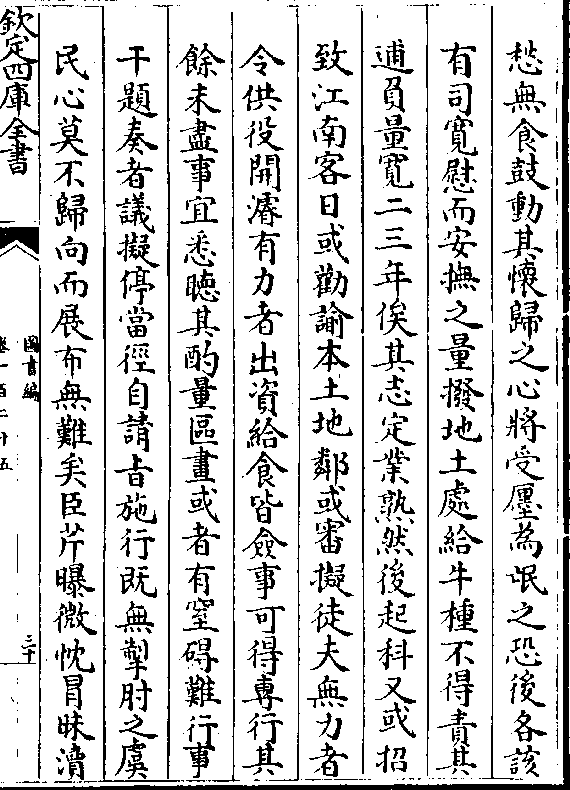 愁無食鼓動其懷歸之心將受廛為氓之恐後各該
有司寛慰而安撫之量撥地土處給牛種不得責其
逋負量寛二三年俟其志定業熟然後起科又或招
致江南客日或勸諭本土地鄰或審擬徒夫無力者
令供役開濬有力者出資給食皆僉事可得專行其
餘未盡事宜悉聽其酌量區畫或者有窒碍難行事
干題奏者議擬停當徑自請㫖施行既無掣肘之虞
民心莫不歸向而展布無難矣臣芹曝微忱冒昧瀆
欽定四庫全書
圖書編
卷一百二十五
三十